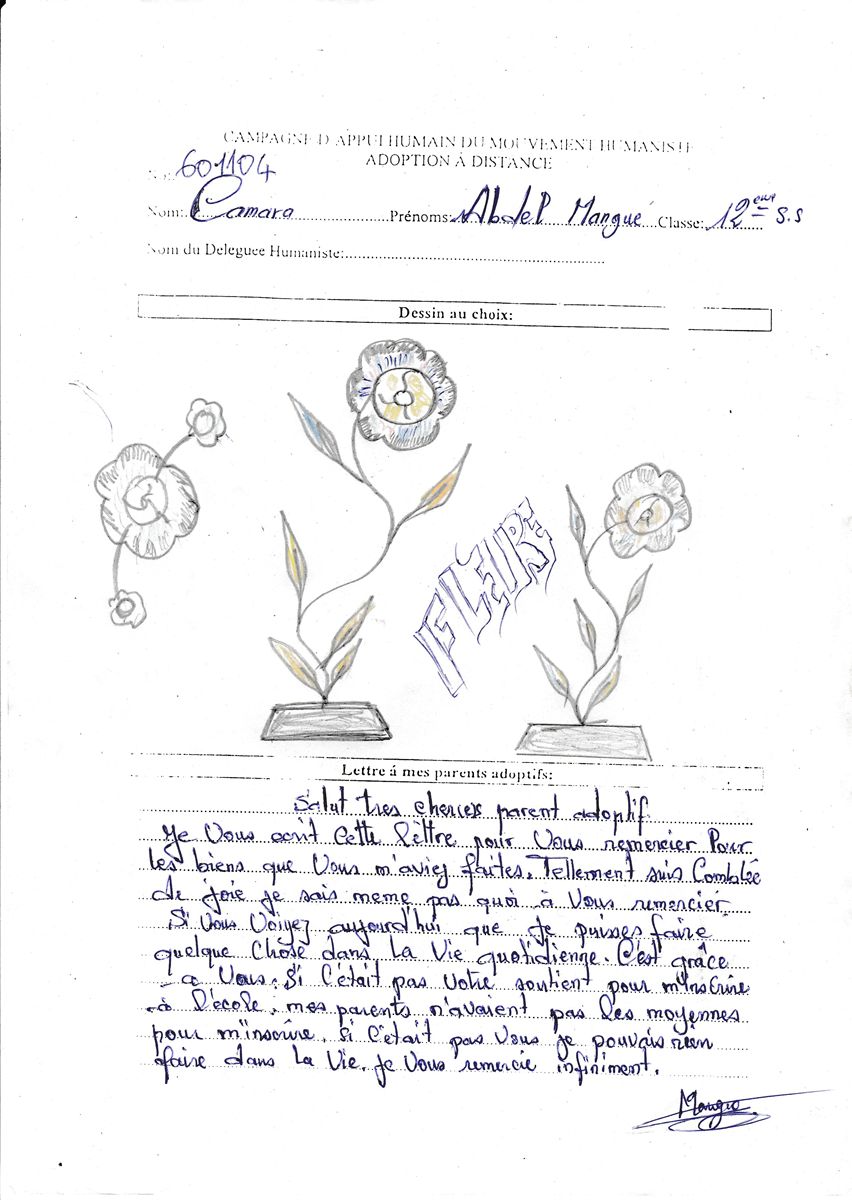 CAMPAGNE D'APPUI HUMAIN DU MOUVEMENT HUMANISTE
ADOPTION À DISTANCE
N°: 601104
Nom: Camara Prénoms: Abdel Mangué Classe: 12ème S.S
Nom du Deleguee Humaniste:
Dessin au choix:
FLEUR:
Lettre á mes parents adoptifs:
Salut tres cherces parent adoptif.
Je Vous ecrit Cette lettre pour Vous remercier Pour
les biens que Vous m'aviez faites. Tellement suis Comblée
de joie je sais meme pas quoi à Vous remercier.
Si Vous Voiyez aujourd'hui que je puisses faire
quelque Chose dans La Vie quotidienge. C'est grâce
a Vous. Si C'était pas Votre soutient pour m'inscrire
à l'école, mes parents n'avaient pas les moyennes
pour m'inscrire, si C'était pas Vous je pouvais rien
faire dans La Vie. je Vous remercie infiniment.
Mangue